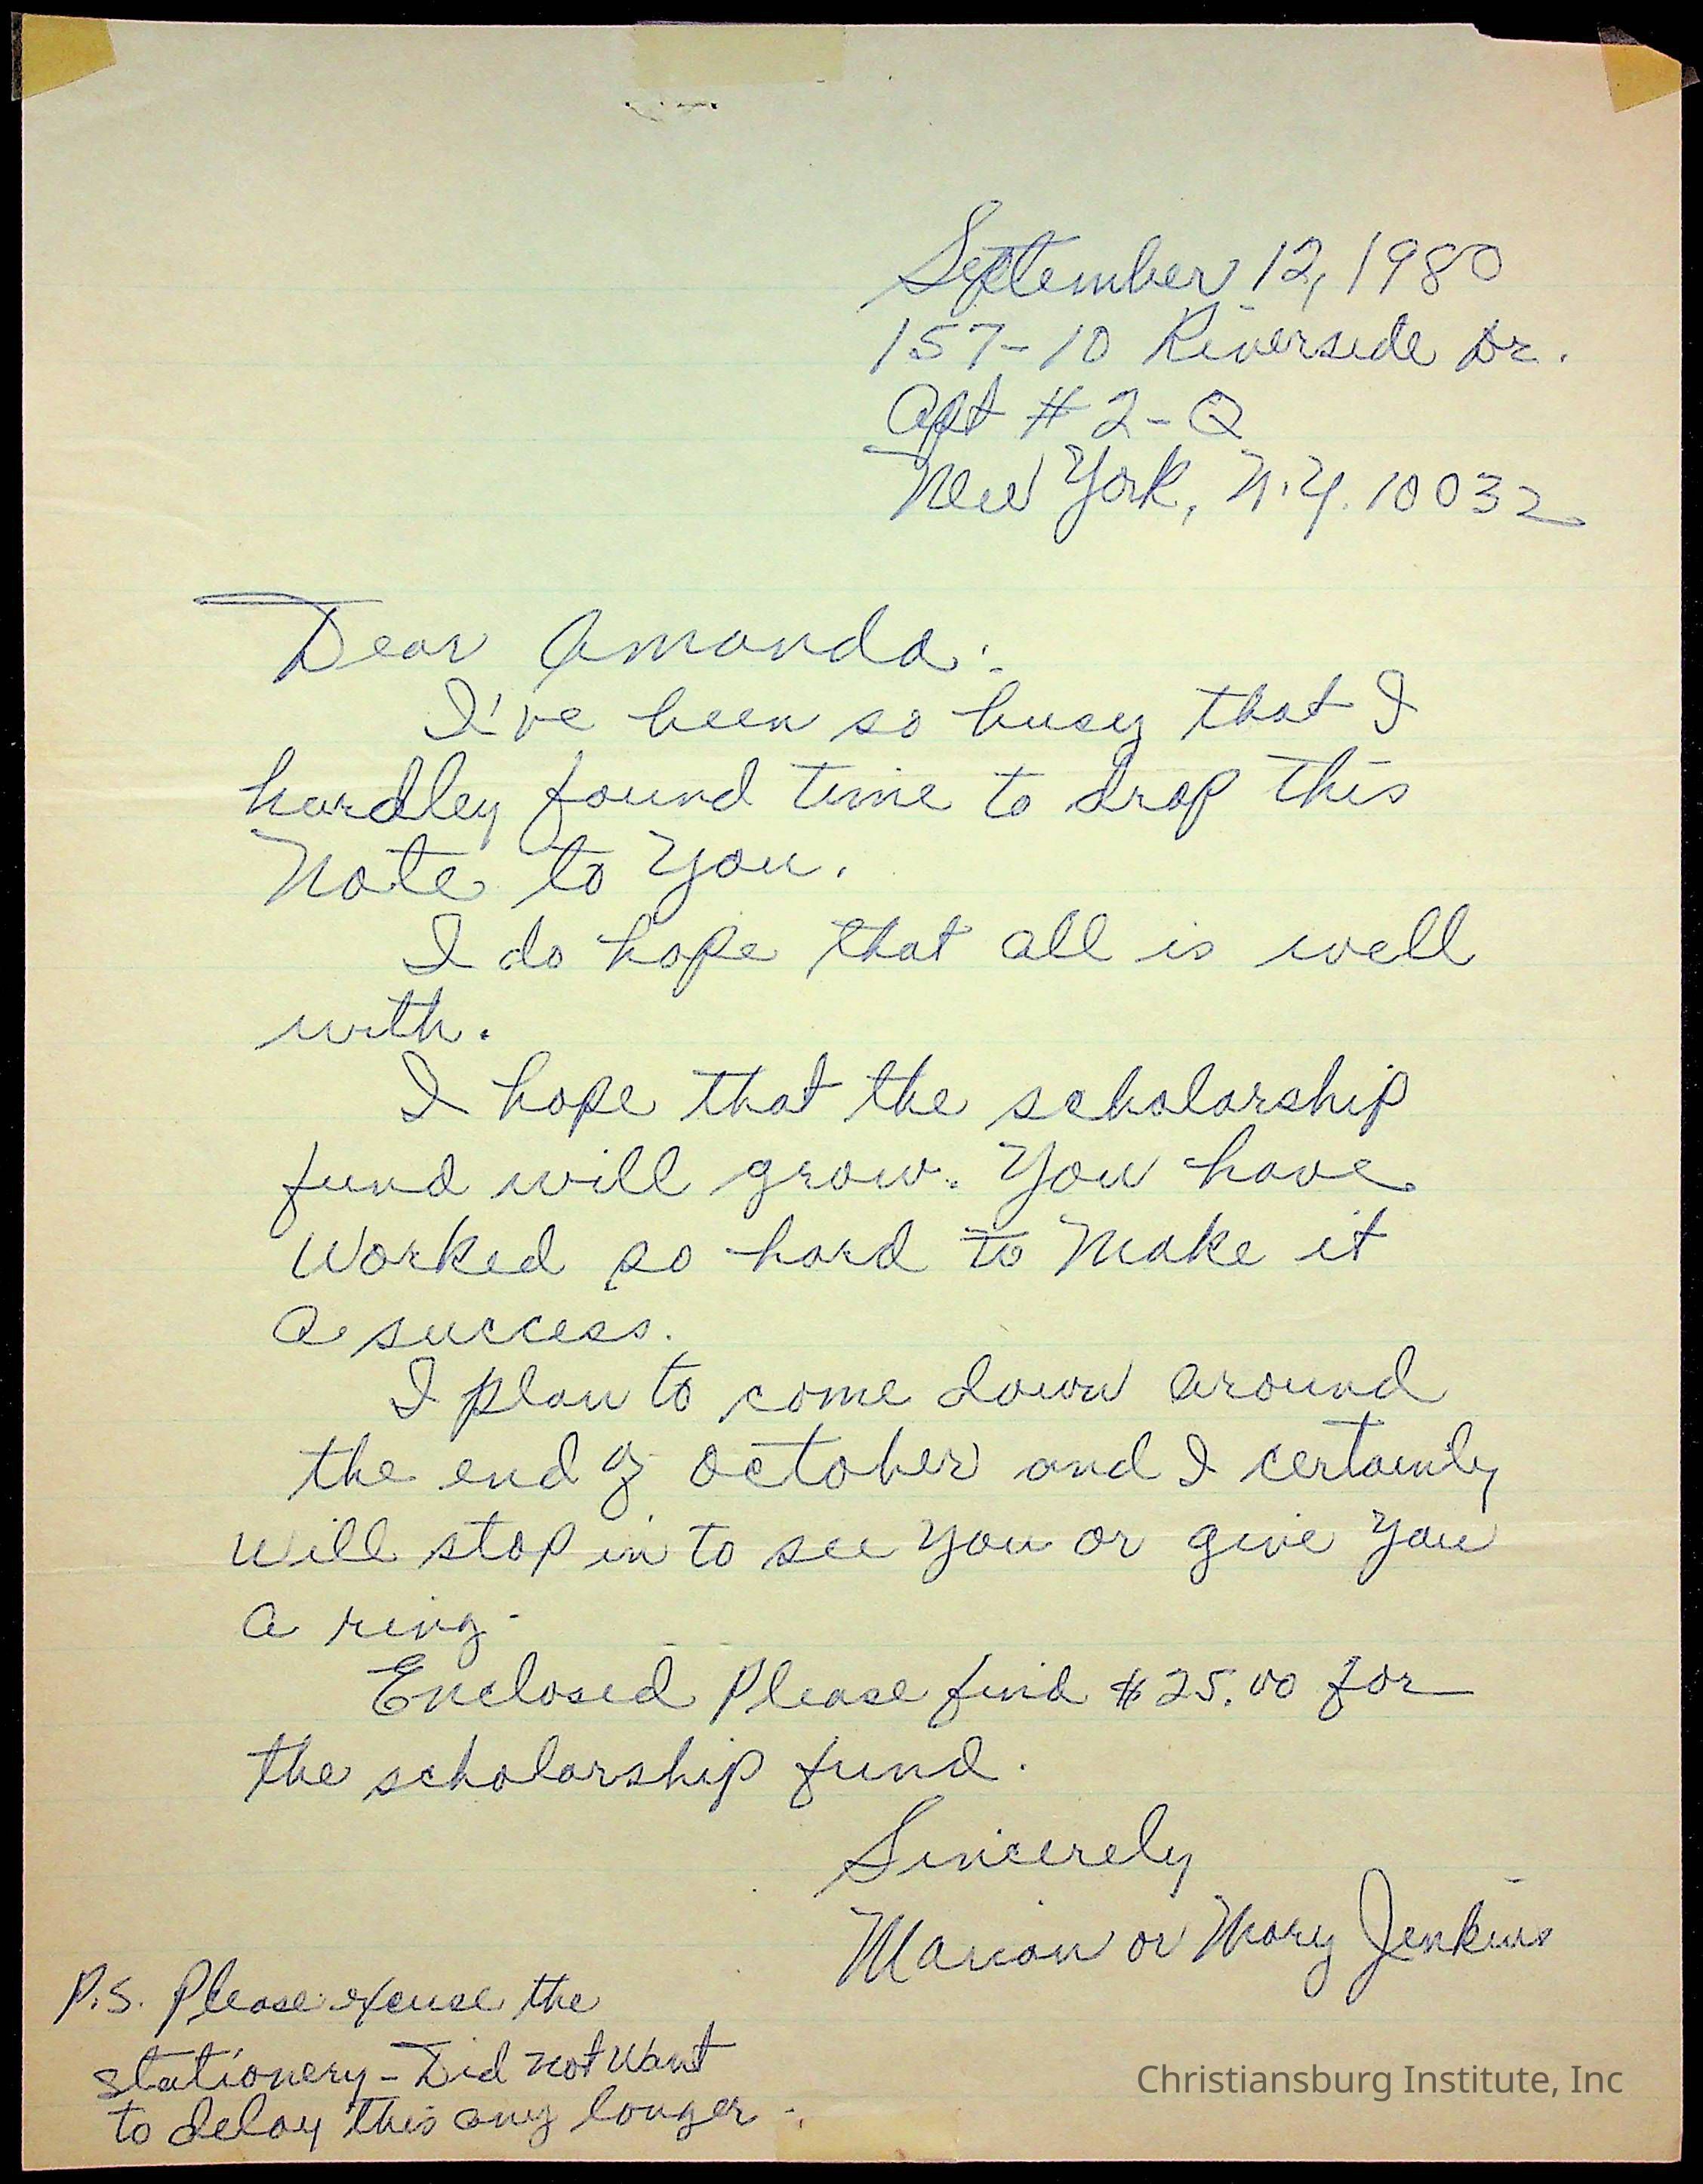 September 12, 1980
157-10 Riverside Dr.
Apt # 2-Q
New York, N.Y. 10032
Dear Amanda:
I've been so busy that I
hardley found time to drop this
Note to You.
I do hope that all is well
with.
I hope that the scholarship
fund will grow. You have
Worked so hard to Make it
a success.
I plan to come down around
the end of October and I certainly
will stop in to see You or give You
a ring.
Enclosed Please find $25.00 for
the scholarship fund.
Sincerely
Marion or Mary Jenkins
P.S. Please excuse the
stationery - Did not Want
to delay this any longer.
Christiansburg Institute, Inc